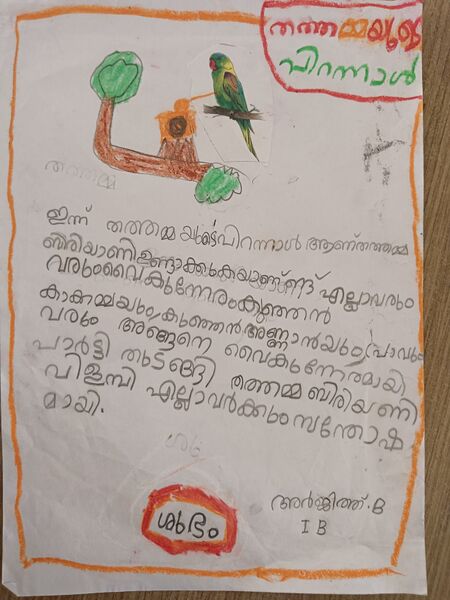 തത്തമ്മയുടെ
പിറന്നാൾ
തത്തമ്മ
ഇന്ന് തത്തമ്മ യുടെപിറന്നാൾ ആണ്തത്തമ്മ
ബിരിയാണിഉണ്ടാക്കുകയാണ് എല്ലാവരും
വരുംവൈകുന്നേരംകുഞ്ഞൻ
കാക്കമ്മയും കുഞ്ഞൻ അണ്ണാൻയും പ്രാവും
വരും അങ്ങനെ വൈകുന്നേരമായി
പാർട്ടി തുടങ്ങി തത്തമ്മ ബിരിയണി
വിളമ്പി എല്ലാവർക്കും സന്തോഷ
മായി.
ശുഭം
അർജിത്ത്. B
I B